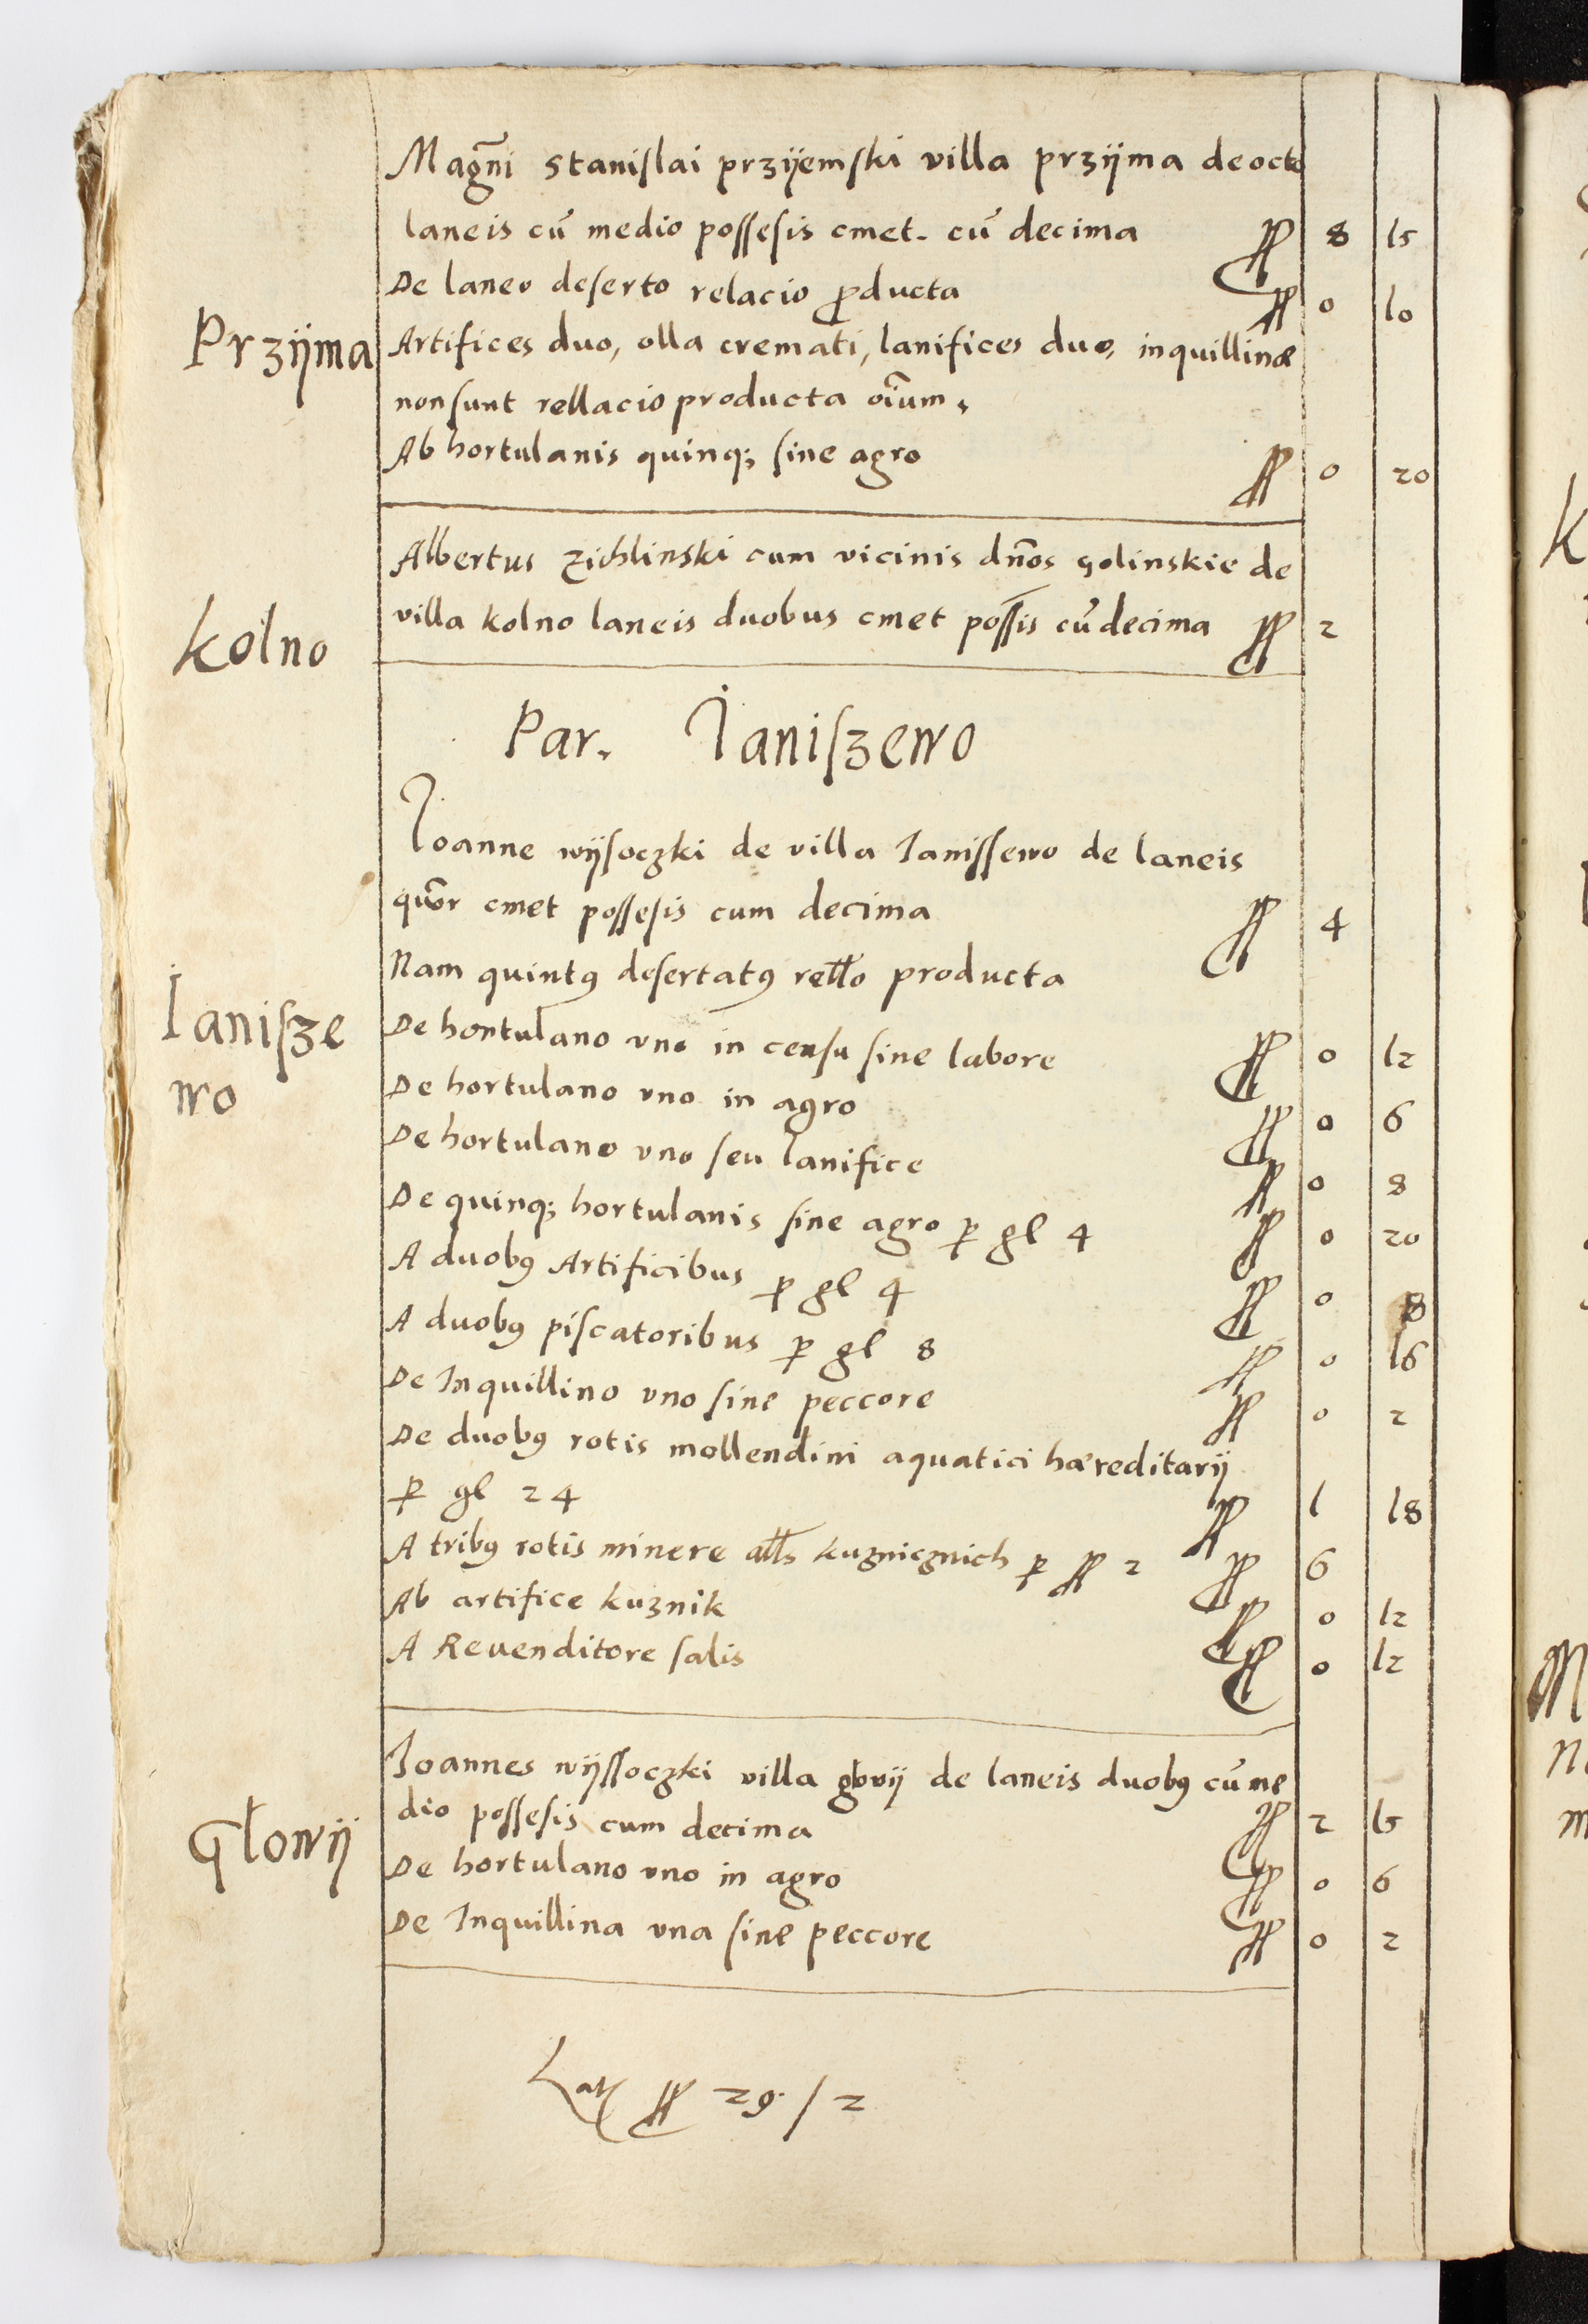 Magñi Stanislai przijemski villa przijma de octo
laneis cũ medio possesis cmet. cũ decima fl 8 15
De laneo deserto relacio ꝓducta fl 0 10
Przijma
Artifices duo, olla cremati, lanifices duo, inquillinæ
non sunt rellacio producta oĩum.
Ab hortulanis quinq; sine agro fl 0 20
Albertus Zichlinski cum vicinis dños golinskie de
Kolno
villa kolno laneis duobus cmet possis cũ decima fl 2
Par. Janiszewo
Joanne wijsoczki de villa Janissewo de laneis
quõr cmet possesis cum decima fl 4
Nam quintꝰ desertatꝰ rello producta
Janisze
wo
De hortulano vno in censu sine labore fl 0 12
De hortulano vno in agro fl 0 6
De hortulano vno seu lanifice fl 0 8
De quinq; hortulanis sine agro ꝑ gl 4 fl 0 20
A duobꝰ Artificibus ꝑ gl 4 fl 0 8
A duobꝰ piscatoribus ꝑ gl 8 fl 0 16
De Inquillino vno sine peccore fl 0 2
De duobꝰ rotis mollendini aquatici hæreditarij
ꝑ gl 24 fl 1 18
A tribꝰ rotis minere alls kuznicznich ꝑ fl 2 fl 6
Ab artifice kuznik fl 0 12
A Revenditore salis fl 0 12
Joannes wijssoczki villa glovij de laneis duobꝰ cũ me
Głowij
dio possesis cum decima fl 2 15
De hortulano vno in agro fl 0 6
De Inquillina vna sine peccore fl 0 2
Latꝰ fl 29 / 2